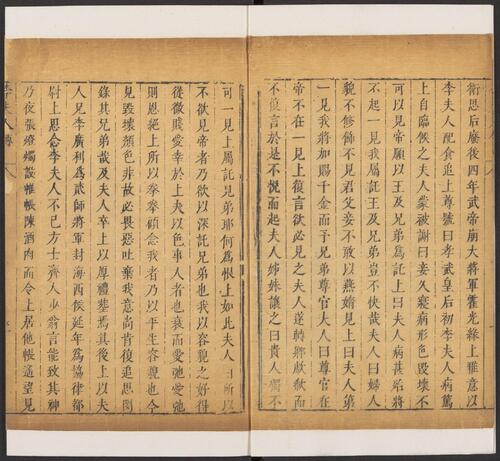 衛思后廢後四年武帝崩大將軍霍光緣上雅意以
李夫人配食追上尊號曰孝武皇后初李夫人病篤
上自臨候之夫人蒙被謝曰妾久寢病形色毀壞不
可以見帝願以王及兄弟爲託上曰夫人病甚殆將
不起一見我屬託王及兄弟豈不快哉夫人曰婦人
貌不修飾不見君父妾不敢以燕媠見上曰夫人第
一見我將加賜千金而予兄弟尊官夫人曰尊官在
帝不在一見上復言欲必見之夫人遂轉鄉歔欷而
不復言於是不悅而起夫人姊妹讓之曰貴人獨不
可一見上屬託兄弟耶何爲恨上如此夫人曰所以
不欲見帝者乃欲以深託兄弟也我以容貌之好得
從微賤愛幸於上夫以色事人者色衰而愛弛愛弛
則恩絕上所以拳拳顧念我者乃以平生容貌也今
見毀壞顏色非故必畏惡吐棄我意尚肯復追思閔
錄其兄弟哉及夫人卒上以厚禮葬焉其後上以夫
人兄李廣利爲貳師將軍封海西侯延年爲協律都
尉上思念李夫人不已方士齊人少翁言能致其神
乃夜張燈燭設帷帳陳酒肉而令上居他帳遙望見
李夫人傳 八